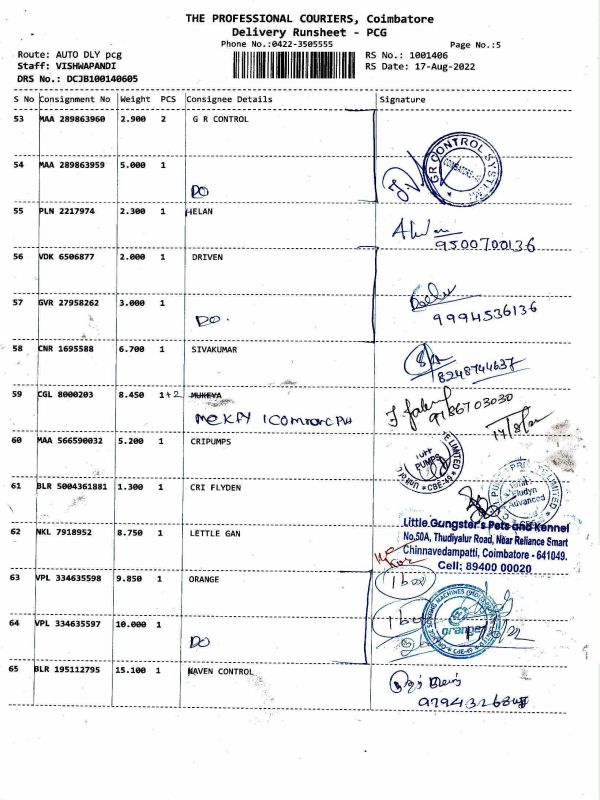 THE PROFESSIONAL COURIERS, Coimbatore
Delivery Runsheet - PCG
Phone No.:0422-3505555
Page No.:5
Route: AUTO DLY pcg
RS No.: 1001406
Staff: VISHWAPANDI
RS Date: 17-Aug-2022
DRS No.: DCJB100140605
S No Consignment No Weight PCS Consignee Details Signature
53 MAA 289863960 2.900 2 G R CONTROL
GR CONTROL SYSTEMS
54 MAA 289863959 5.000 1
DO
55 PLN 2217974 2.300 1 HELAN
9500700136
56 VDK 6506877 2.000 1 DRIVEN
57 GVR 27958262 3.000 1
DO.
9994536136
58 CNR 1695588 6.700 1 SIVAKUMAR
8248744637
59 CGL 8000203 8.450 1+2 MUKEYA
9186703030
17/8/22
60 MAA 566590032 5.200 1 CRIPUMPS
PUMPS
LIMITED
CBE-49
61 BLR 5004361881 1.300 1 CRI FLYDEN
Unit
Fludyn
Advanced
LIMITED
62 NKL 7918952 8.750 1 LETTLE GAN
Little Gungster's Pets and Kennel
No.50A, Thudiyalur Road, Near Reliance Smart
Chinnavedampatti, Coimbatore - 641049.
Cell: 89400 00020
63 VPL 334635598 9.850 1 ORANGE
1 box
64 VPL 334635597 10.000 1
DO
1 box
orange
CBE-49
65 BLR 195112795 15.100 1 RAVEN CONTROL